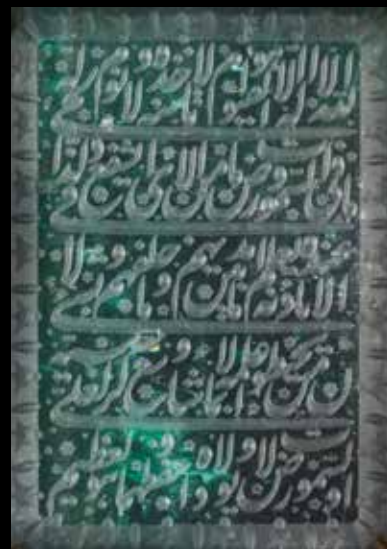 الله لا اله الا هو الحي القيوم لا تاخذه سنة ولا نوم له
ما في السموات وما في الارض من ذا الذي يشفع
عنده الا باذنه يعلم ما بين ايديهم وما خلفهم ولا
يحيطون بشي من علمه الا بما شاء وسع كرسيه
السموات والارض ولا يوده حفظهما وهو العلي العظيم